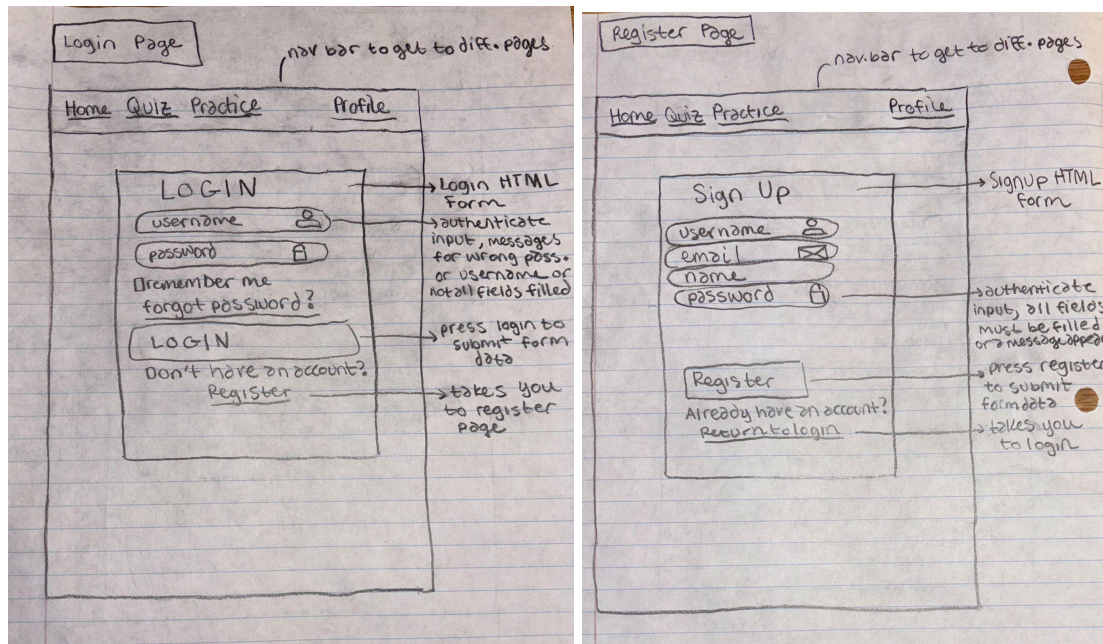 Login Page
nav bar to get to diff. pages
Home Quiz Practice Profile
LOGIN
username
password
remember me
forgot password?
LOGIN
Don't have an account?
Register
Login HTML
form
authenticate
input, messages
for wrong pass.
or username or
not all fields filled
press login to
submit form
data
takes you
to register
page
Register Page
nav.bar to get to diff. pages
Home Quiz Practice Profile
Sign Up
username
email
name
password
Register
Already have an account?
Return to login
Signup HTML
form
authenticate
input, all fields
must be filled
or a message appea
press register
to submit
form data
takes you
to login